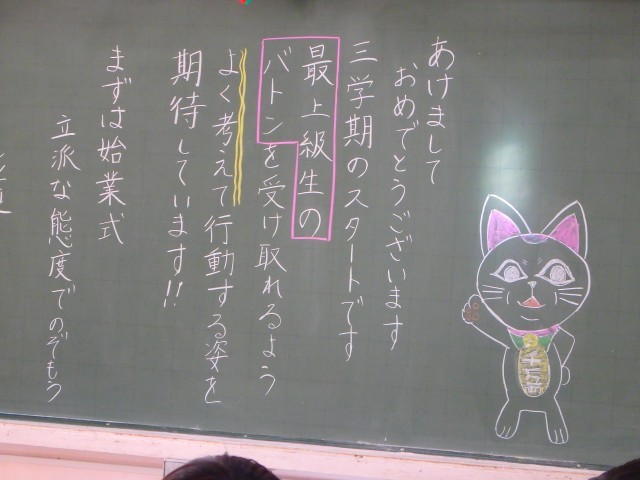 あけまして
おめでとうございます
三学期のスタートです
最上級生の
バトンを受け取れるよう
よく考えて行動する姿を
期待しています!!
まずは始業式
立派な態度でのぞもう